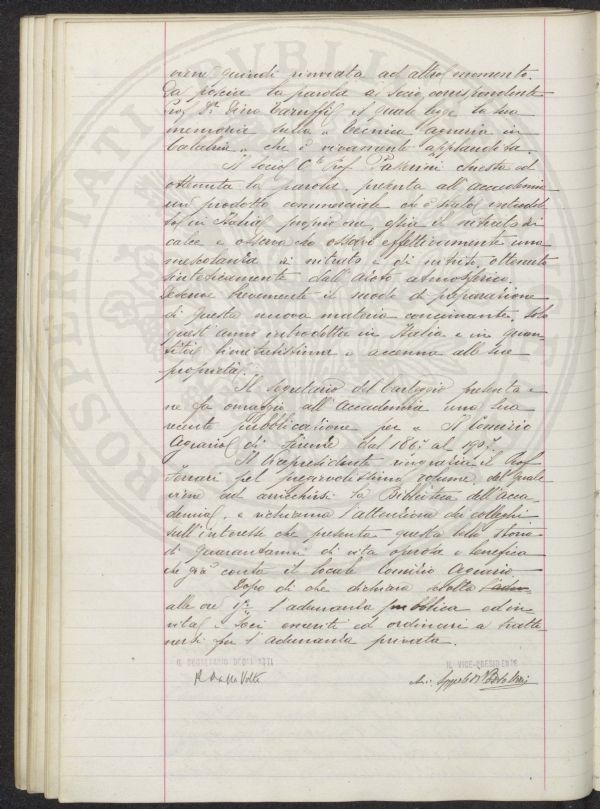 viene quindi rinviata ad altro momento.
Dà poscia la parola al Socio corrispondente
Prof. Dr. Dino Taruffi, il quale legge la sua
memoria sulla " tecnica agraria in
Calabria " che è vivamente applaudita.
Il Socio Ct. Prof. Passerini chiesta ed
ottenuta la parola, presenta all'accademia
un prodotto commerciale che è stato introdot-
to in Italia proprio ora, ossia il nitrato di
calce e osserva che essere effettivamente una
mescolanza di nitrato e di nitrito ottenuto
sinteticamente dall'azoto atmosferico.
brevemente il modo di preparazione
di questa nuova materia concimante, solo
quest'anno introdotta in Italia e in quan-
tità limitatissima e accenna alle sue
proprietà.
Il segretario del carteggio presenta e
ne fa omaggio all'Accademia una sua
recente pubblicazione per " Il Comizio
Agrario di Firenze dal 186 al 190
Il Vicepresidente ringrazia il Prof.
Ferrari pel pregevolissimo volume del quale
viene ad arricchirsi la Biblioteca dell'acca-
demia, e richiama l'attenzione dei colleghi
sull'interesse che presenta questa bella storia
di quarantanni di vita operosa e benefica
che già conta il locale Comizio Agrario.
Dopo di che dichiara sciolta
alle ore l'adunanza pubblica ed in-
vita i Soci emeriti ed ordinari a tratte-
nersi per l'adunanza privata.
IL SEGRETARIO DEGLI ATTI
IL VICE-PRESIDENTE
Dalla Volta